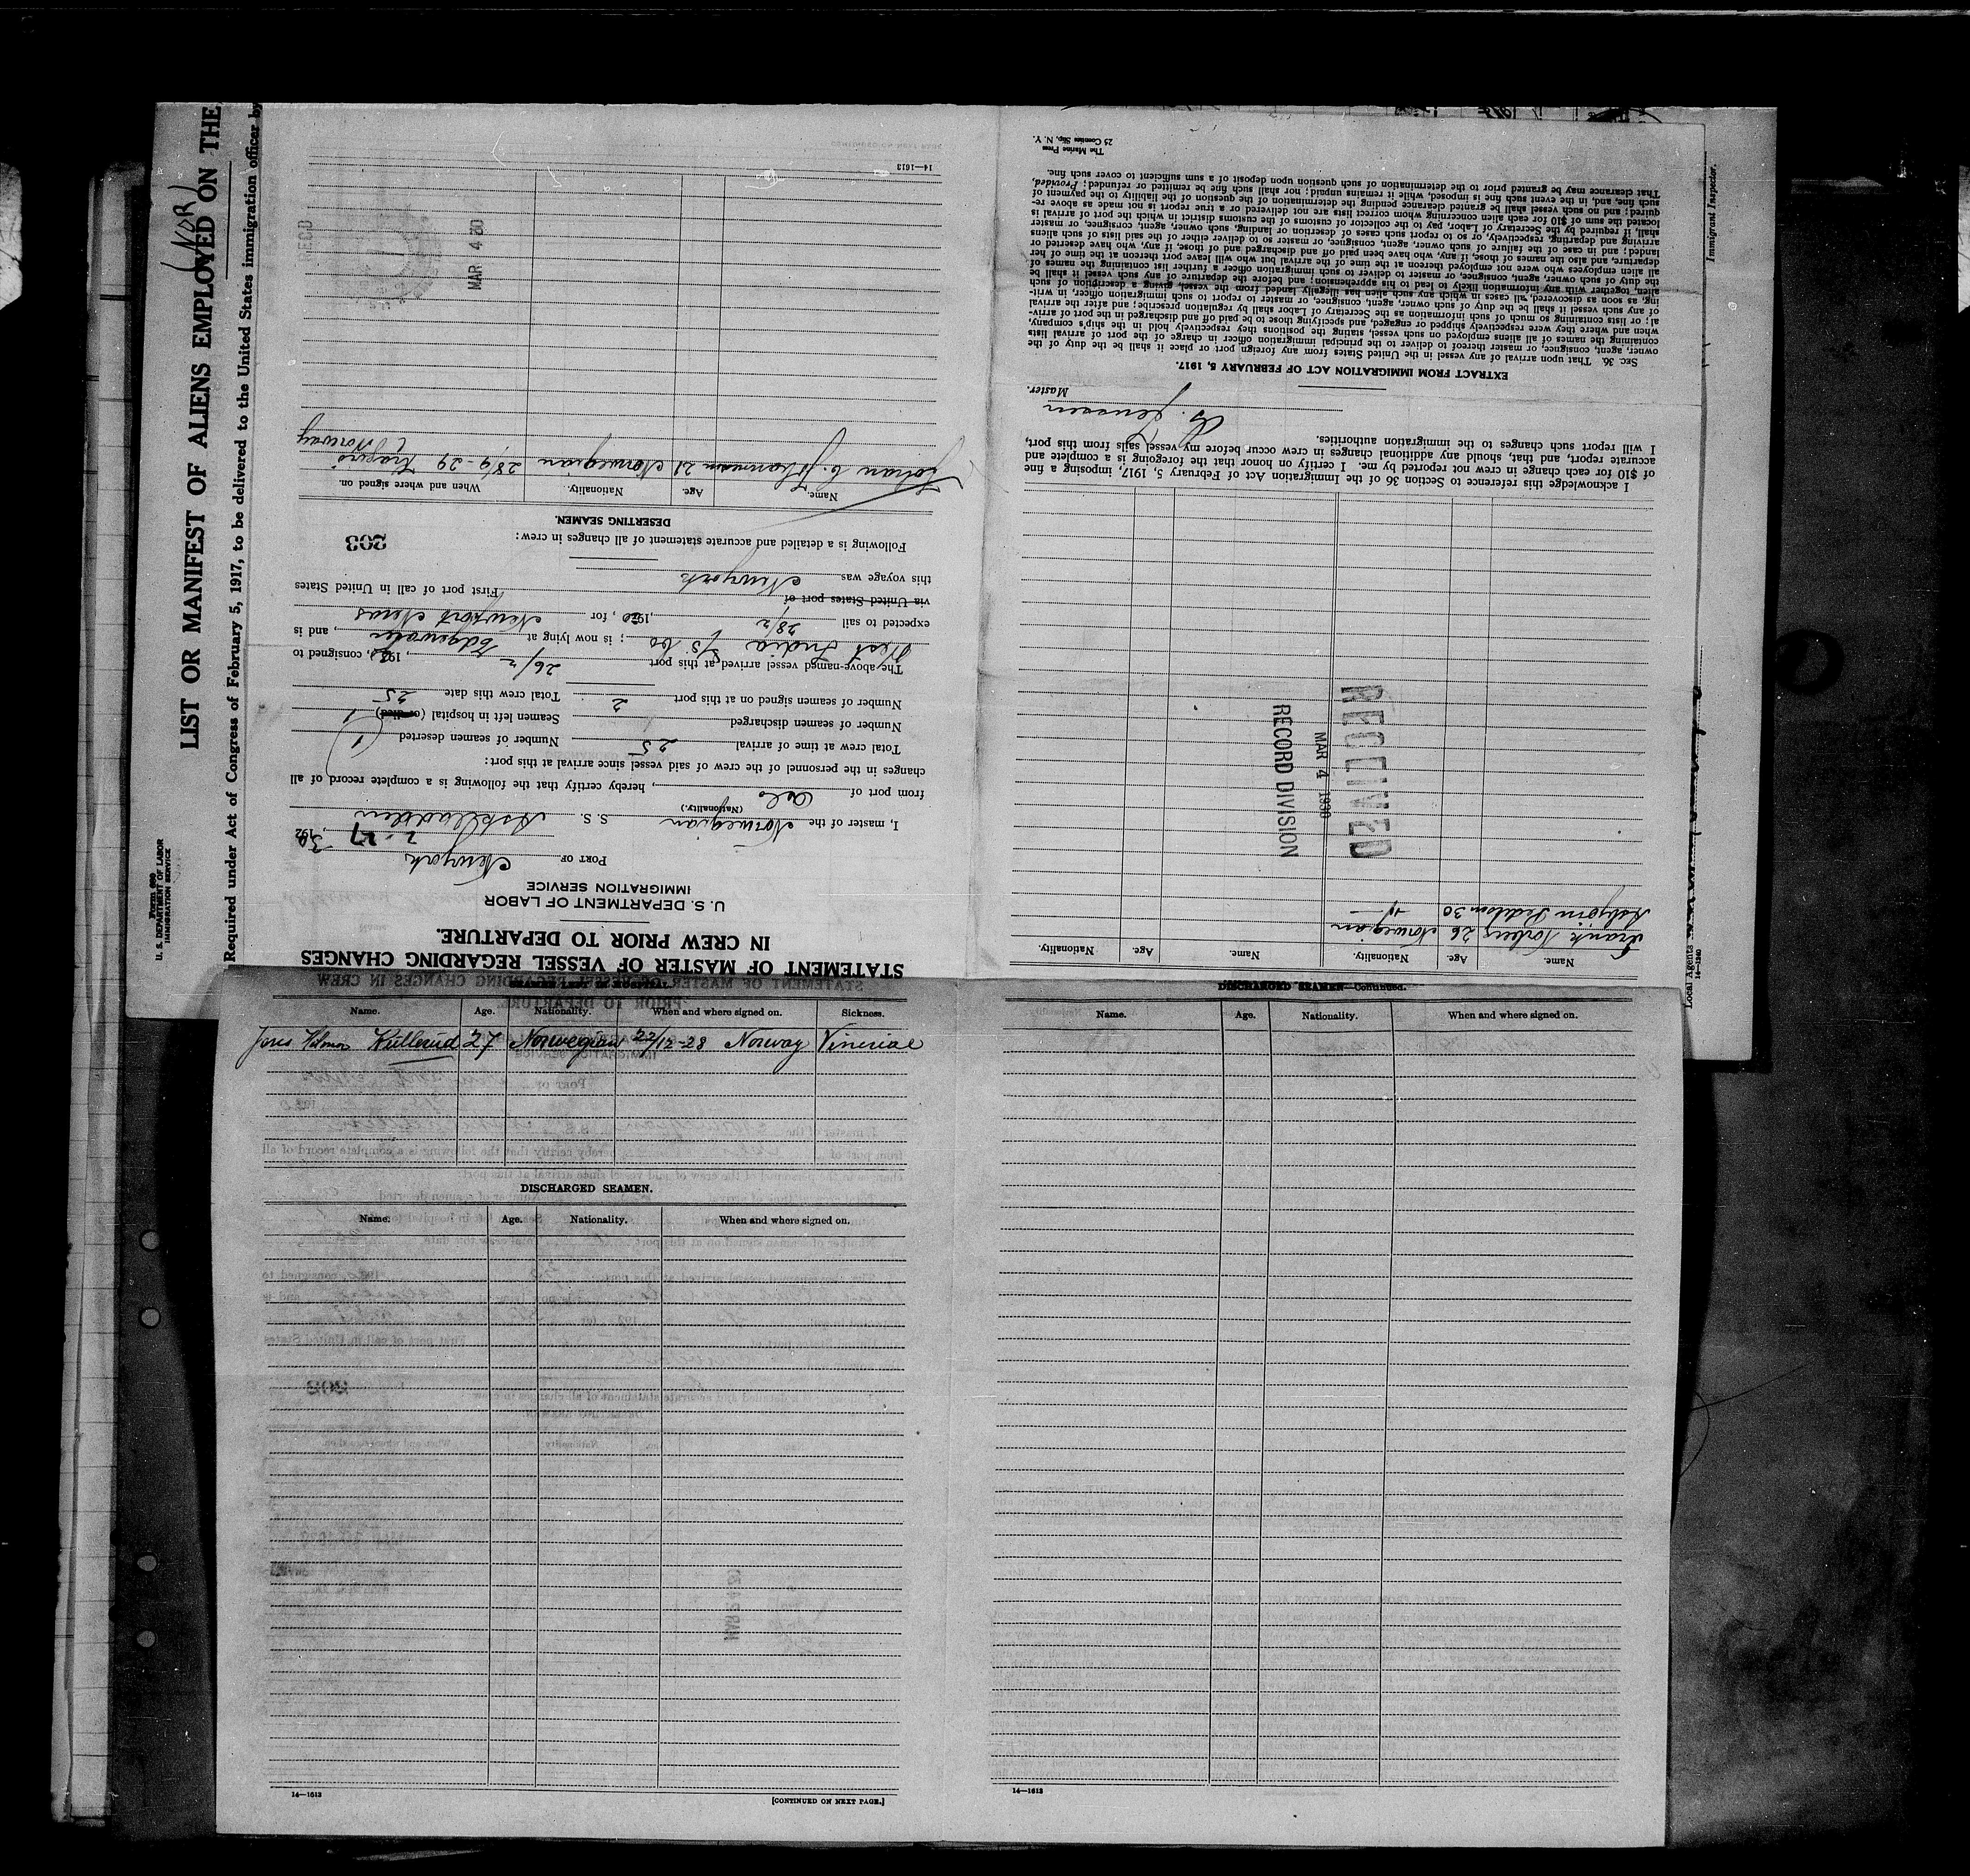 LIST OR MANIFEST OF ALIENS EMPLOYED ON THE
Required under Act of Congress of February 5, 1917, to be delivered to the United States immigration officer by
Form 680
U. S. DEPARTMENT OF LABOR
IMMIGRATION SERVICE
NOR
STATEMENT OF MASTER OF VESSEL REGARDING CHANGES
IN CREW PRIOR TO DEPARTURE.
U. S. DEPARTMENT OF LABOR
IMMIGRATION SERVICE
PORT OF Newyork
2-27, 1930
I, master of the Norwegian S. S. Askeladden
(Nationality.)
from port of Oslo, hereby certify that the following is a complete record of all
changes in the personnel of the crew of said vessel since arrival at this port:
Total crew at time of arrival 25 Number of seamen deserted 1
Number of seamen discharged Seamen left in hospital (or died) 1
Number of seamen signed on at this port 2 Total crew this date 25
The above-named vessel arrived at this port 26/2, 1930, consigned to
West India S/S Co; is now lying at Edgewater, and is
expected to sail 28/2, 1930, for Newport News
via United States port of First port of call in United States
this voyage was Newyork
Following is a detailed and accurate statement of all changes in crew:
203
DESERTING SEAMEN.
Name. Age. Nationality. When and where signed on.
Johan 21 Norwegian 28/9-29 Kragerö
Norway
MAR 4 30
14—1613
Name. Age. Nationality. Name. Age. Nationality.
Frank 26 Norwegian
Asbjørn 30 -"-
RECEIVED
MAR 4 1930
RECORD DIVISION
I acknowledge this reference to Section 36 of the Immigration Act of February 5, 1917, imposing a fine
of $10 for each change in crew not reported by me. I certify on honor that the foregoing is a complete and
accurate report, and that, should any additional changes in crew occur before my vessel sails from this port,
I will report such changes to the immigration authorities.
Jenssen
Master.
EXTRACT FROM IMMIGRATION ACT OF FEBRUARY 5, 1917.
SEC. 36. That upon arrival of any vessel in the United States from any foreign port or place it shall be the duty of the
owner, agent, consignee, or master thereof to deliver to the principal immigration officer in charge of the port of arrival lists
containing the names of all aliens employed on such vessel, stating the positions they respectively hold in the ship's company,
when and where they were respectively shipped or engaged, and specifying those to be paid off and discharged in the port of arriv-
al; or lists containing so much of such information as the Secretary of Labor shall by regulation prescribe; and after the arrival
of any such vessel it shall be the duty of such owner, agent, consignee, or master to report to such immigration officer, in writ-
ing, as soon as discovered, all cases in which any such alien has illegally landed from the vessel, giving a description of such
alien, together with any information likely to lead to his apprehension; and before the departure of any such vessel it shall be
the duty of such owner, agent, consignee, or master to deliver to such immigration officer a further list containing the names of
all alien employees who were not employed thereon at the time of the arrival but who will leave port thereon at the time of her
departure, and also the names of those, if any, who have been paid off and discharged and of those, if any, who have deserted or
landed; and in case of the failure of such owner, agent, consignee, or master so to deliver either of the said lists of such aliens
arriving and departing, respectively, or so to report such cases of desertion or landing, such owner, agent, consignee, or master
shall, if required by the Secretary of Labor, pay to the collector of customs of the customs district in which the port of arrival is
located the sum of $10 for each alien concerning whom correct lists are not delivered or a true report is not made as above re-
quired; and no such vessel shall be granted clearance pending the determination of the question of the liability to the payment of
such fine, and, in the event such fine is imposed, while it remains unpaid; nor shall such fine be remitted or refunded; Provided,
That clearance may be granted prior to the determination of such question upon deposit of a sum sufficient to cover such fine.
The Marine Press
25 Coenties Slip, N. Y.
Immigrant Inspector.
Local Agents
14—1240
Name. Age. Nationality. When and where signed on. Sickness.
Jens Hilmar Kullerud 27 Norwegian 22/12-28 Norway Vinerial
DISCHARGED SEAMEN.
Name. Age. Nationality. When and where signed on.
14—1613
[CONTINUED ON NEXT PAGE.]
DISCHARGED SEAMEN—Continued.
Name. Age. Nationality. When and where signed on.
14—1613